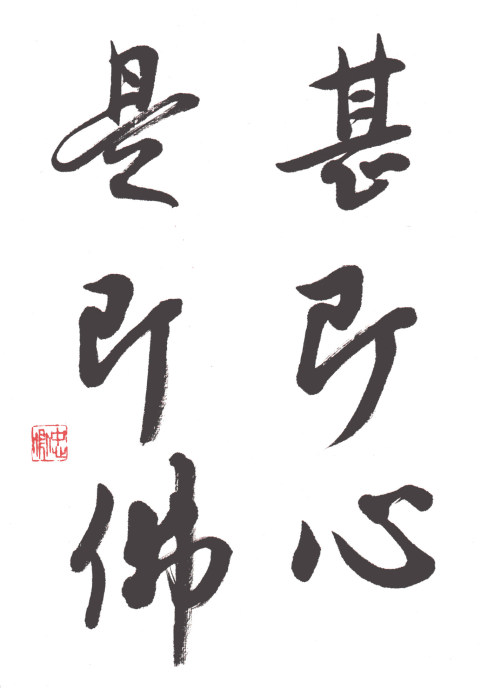 甚即心
是即佛